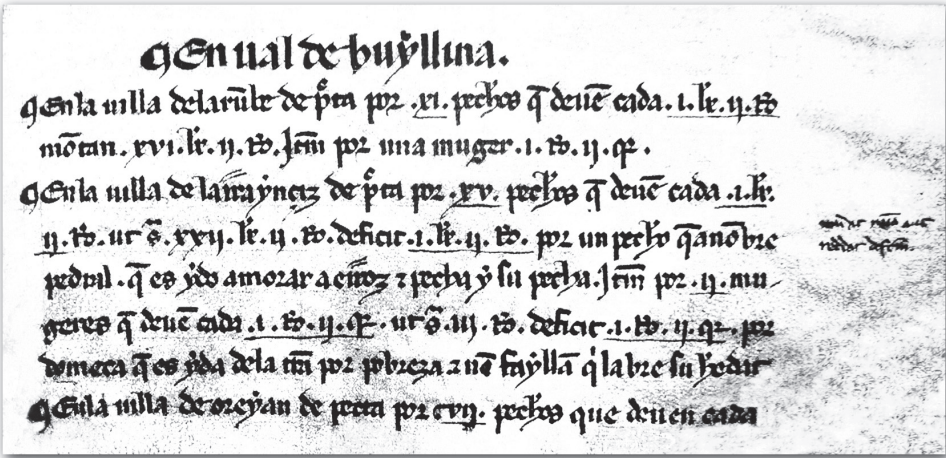 ¶ En ual de buyllina.
¶ En la uilla delarũbe de p̃ta por .xi. pechos q̃ deuẽ cada .i. k̃. ii. Ro
mõtan. xvi. k̃. ii. Ro. Itm̃ por una muger .i. Ro. ii. qr.
¶ En la uilla de larraynçiz de p̃ta por .xv. pechos q̃ deuẽ cada .i. k̃.
ii. Ro. ut s̃. xxii. k̃. ii. Ro. deficit .i. k̃. ii. Ro. por un pecho q̃ a nõbre
q̃ es ydo a morar a z pecha y su pecha. Itm̃ por .ii. mu-
geres q̃ deuẽ cada .i. Ro. ii. qr. ut s̃. iii. Ro. deficit .i. Ro. ii. qr. por
domeca q̃ es yda dela t̃ra por pobreza z nẽ fayllã q̃ labre su
¶ En la uilla de oreyan de pecta por pechos que deuen cada